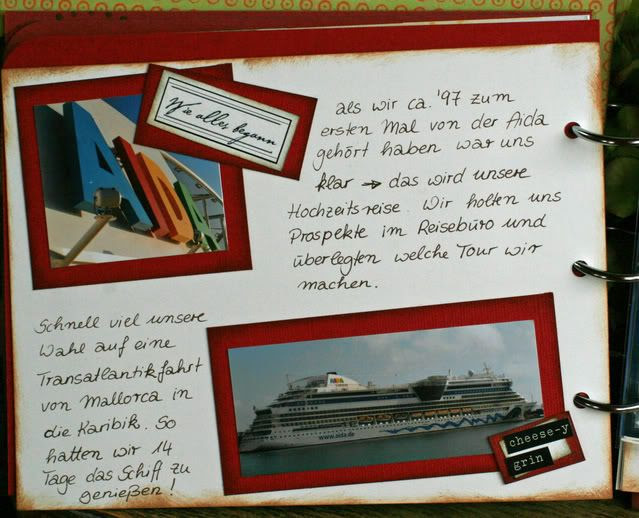 Wie alles begann
AIDA
als wir ca. '97 zum
ersten Mal von der Aida
gehört haben war uns
klar → das wird unsere
Hochzeitsreise. Wir holten uns
Prospekte im Reisebüro und
überlegten welche Tour wir
machen.
Schnell viel unsere
Wahl auf eine
Transatlantikfahrt
von Mallorca in
die Karibik. So
hatten wir 14
Tage das Schiff zu
genießen!
www.aida.de
cheese-y
grin